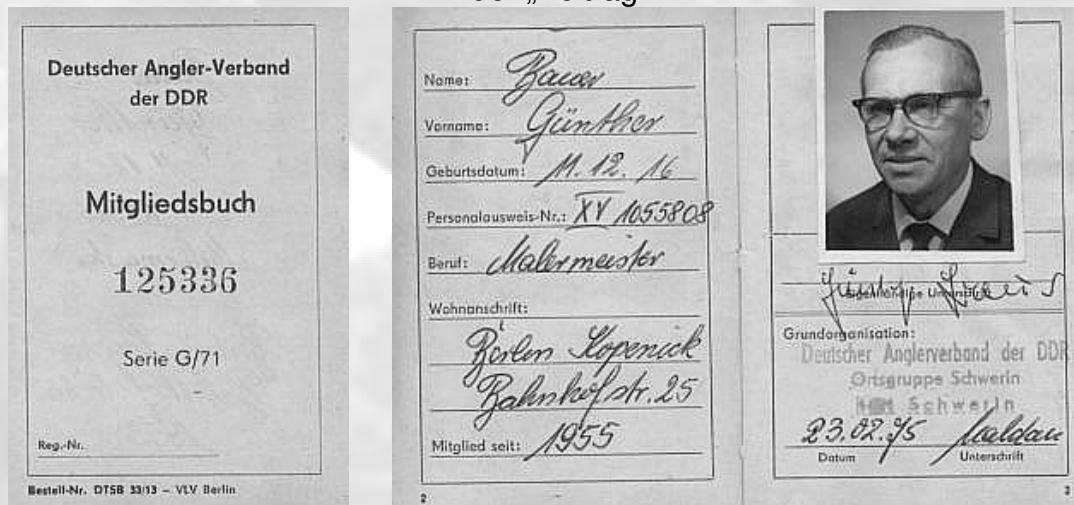 Deutscher Angler-Verband
der DDR
Mitgliedsbuch
125336
Serie G/71
Reg.-Nr.
Bestell-Nr. DTSB 33/13 – VLV Berlin
Name: Bauer
Vorname: Günther
Geburtsdatum: 11. 12. 16
Personalausweis-Nr.: XV 1055808
Beruf: Malermeister
Wohnanschrift:
Berlin Köpenick
Bahnhofstr. 25
Mitglied seit: 1955
2
Eigenhändige Unterschrift
Grundorganisation:
Deutscher Anglerverband der DDR
Ortsgruppe Schwerin
Schwerin
23.02.75
Datum Unterschrift
3